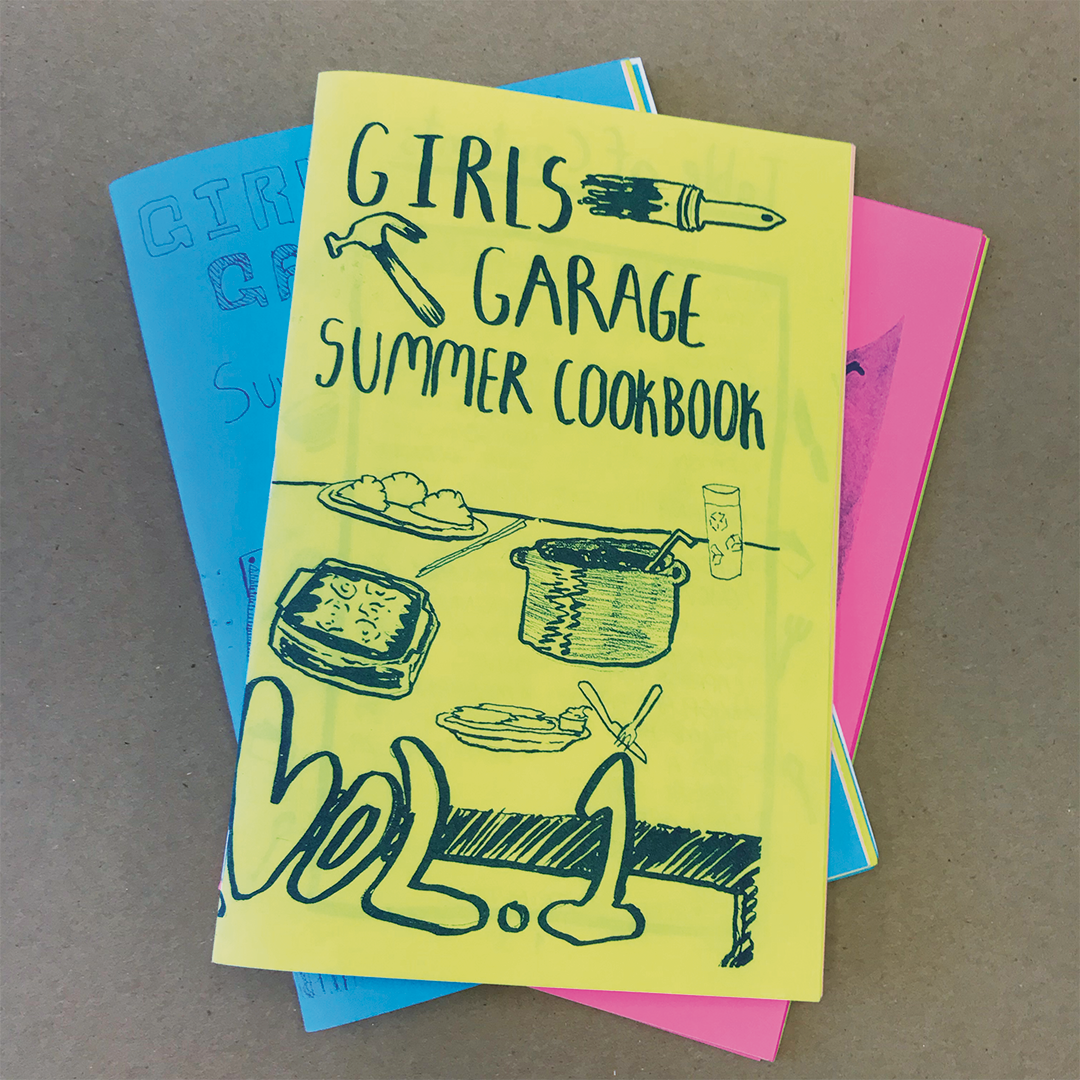 GIRLS
GARAGE
SUMMER COOKBOOK
VOL. 1
GIRL
GA
Su